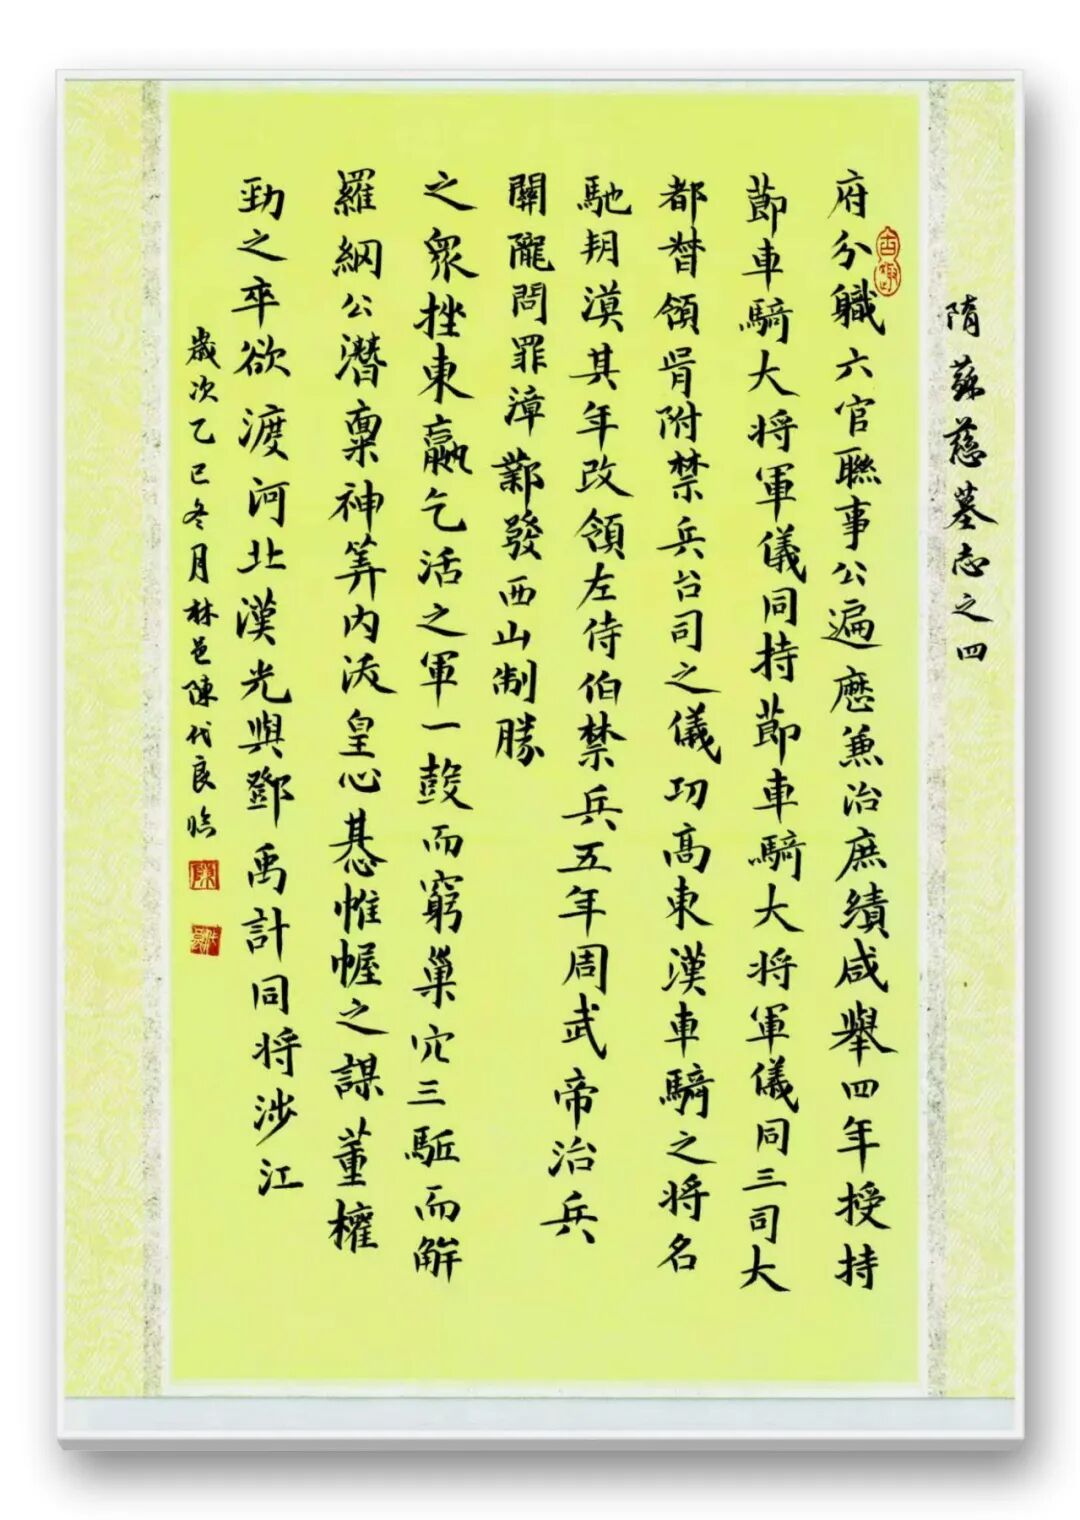 隋蘇慈墓志之四
府分職六官聯事公遍歷兼治庶績咸舉四年授持
節車騎大將軍儀同持節車騎大將軍儀同三司大
都督領胥附禁兵台司之儀功高東漢車騎之將名
馳朔漠其年改領左侍伯禁兵五年周武帝治兵
關隴問罪漳鄴發西山制勝
之眾挫東嬴乞活之軍一鼓而窮巢穴三駈而解
羅網公潛稟神筭内沃皇心惎帷幄之謀董權
勁之卒欲渡河北漢光與鄧禹計同将涉江
歲次乙巳冬月林邑陳代良臨